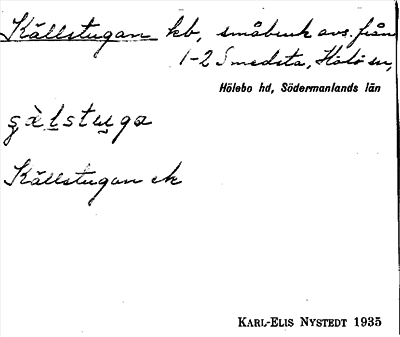 Källstugan kb, småbruk avs. från
1-2 Smedsta, Hölö sn,
Hölebo hd, Södermanlands län
ʂὰl̠stu̠ga
Källstugan ek
KARL-ELIS NYSTEDT 1935